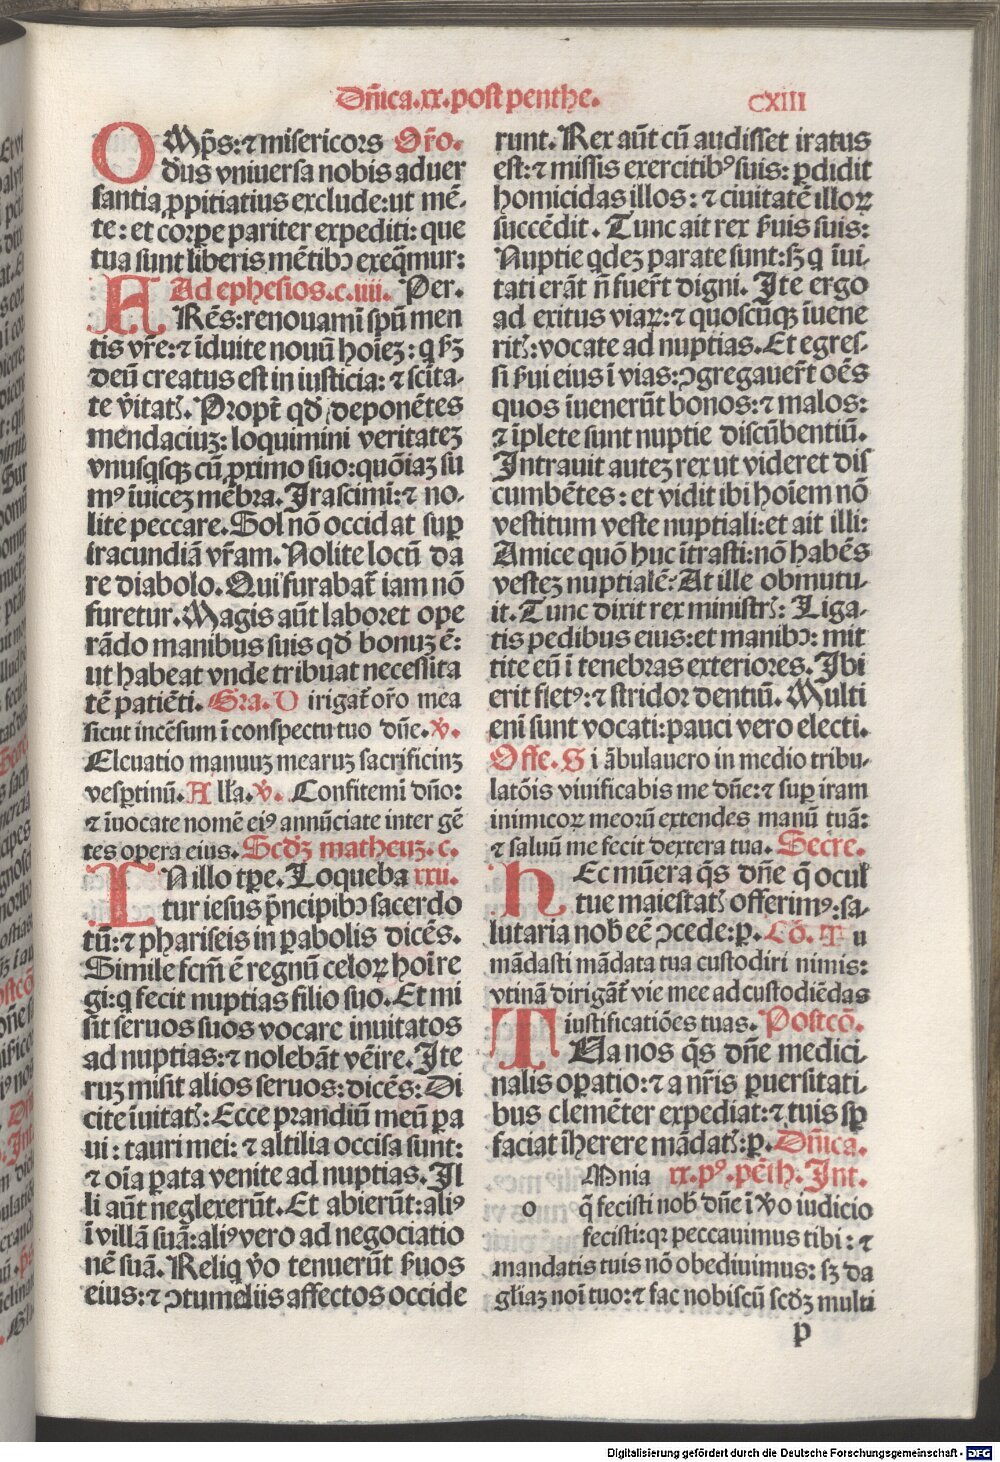 Dñica.xx.post penthe.
CXIII
OMp̄s:⁊ misericors Or̄o.
d̄us vniuersa nobis aduer
santia ꝓpitiatius exclude:ut mē-
te: et corpe pariter expediti: que
tua sunt liberis mētibꝰ exeq̄mur:
Ad ephesios.c.iiii. Per.
FRēs:renouamī spū men
tis vr̄e:⁊ īduite nouū hoīeꝫ: q ẜꝫ
deū creatus est in iusticia: ⁊ sc̄ita-
te v̄itatꝭ. Propt̄ qd̄ deponētes
mendaciuꝫ: loquimini veritateꝫ
vnusqsqꝫ cū ꝓximo suo:quōiaꝫ su
mꝰ īuiceꝫ mēbra. Irascimī:⁊ no-
lite peccare. Sol nō occidat sup
iracundiā vr̄am. Nolite locū da
re diabolo. Qui furabat̄ iam nō
furetur. Magis aūt laboret ope
rādo manibus suis qd̄ bonuꝫ ē:
ut habeat vnde tribuat necessita
tē patiēti. Gra. D irigat̄ or̄o mea
sicut incēsum ī conspectu tuo dn̄e. v̄.
Eleuatio manuuꝫ mearuꝫ sacrificiuꝫ
vesꝑtinū. A ll̄a. v̄. Confitemī dn̄o:
⁊ īuocate nomē eiꝰ annūciate inter gē
tes opera eius. Scd̄ꝫ matheuꝫ.c.
IN illo tꝑe. Loqueba xxii.
tur iesus p̄ncipibꝰ sacerdo
tū:⁊ phariseis in ꝑabolis dicēs.
Simile fcm̄ ē regnū celoꝝ hoī re
gi:q fecit nuptias filio suo. Et mi
sit seruos suos vocare inuitatos
ad nuptias:⁊ nolebāt vēire. Ite
ruꝫ misit alios seruos: dicēs: Di
cite īuitatꝭ: Ecce prandiū meū pa
ui: tauri mei: ⁊ altilia occisa sunt:
⁊ oīa ꝑata venite ad nuptias. Il
li aūt neglexerūt. Et abierūt:aliꝰ
ī villā suā:aliꝰ vero ad negociatio
nē suā. Reliq v̄o tenuerūt ẜuos
eius:⁊ ↄtumeliis affectos occide
runt. Rex aūt cū audisset iratus
est:⁊ missis exercitibꝰ suis: ꝑdidit
homicidas illos: ⁊ ciuitatē illoꝝ
succēdit. Tunc ait rex ẜuis suis:
Nuptie qdeꝫ parate sunt:sꝫ q īui-
tati erāt n̄ fuer̄t digni. Ite ergo
ad exitus viaꝝ:⁊ quoscūqꝫ īuene
ritꝭ: vocate ad nuptias. Et egres-
si ẜui eius ī vias: ↄgregauer̄t oēs
quos īuenerūt bonos:⁊ malos:
⁊ īplete sunt nuptie discūbentiū.
Intrauit auteꝫ rex ut videret dis
cumbētes: et vidit ibi hoīem nō
vestitum veste nuptiali:et ait illi:
Amice quō huc ītrasti:nō habēs
vesteꝫ nuptialē? At ille obmutu-
it. Tunc dixit rex ministrꝭ: Liga-
tis pedibus eius:et manibꝰ: mit
tite eū ī tenebras exteriores. Ibi
erit fletꝰ:⁊ stridor dentiū. Multi
enī sunt vocati: pauci vero electi.
Offe. S i ābulauero in medio tribu-
latōis viuificabis me dn̄e:⁊ suꝑ iram
inimicoꝝ meorū extendes manū tuā:
⁊ saluū me fecit dextera tua. Secre.
HEc mūera q̄s dn̄e q̄ ocul
tue maiestatꝭ offerimꝰ:sa-
lutaria nob̄ eē ↄcede:ꝑ. Cō. T u
mādasti mādata tua custodiri nimis:
vtinā dirigāt̄ vie mee ad custodiēdas
iustificatiōes tuas. Postcō.
TUa nos q̄s dn̄e medici-
nalis oꝑatio:⁊ a nr̄is ꝑuersitati-
bus clemēter expediat:⁊ tuis sp̄
faciat īherere mādatꝭ:ꝑ. Dñica.
Mnia xx.pꝰ.pēth. Int.
o q̄ fecisti nob̄ dn̄e ī v̄o iudicio
fecisti:qꝛ peccauimus tibi: ⁊
mandatis tuis nō obediuimus: sꝫ da
gl̄iaꝫ noī tuo:⁊ fac nobiscū scd̄ꝫ multi
p
Digitalisierung gefördert durch die Deutsche Forschungsgemeinschaft - DFG